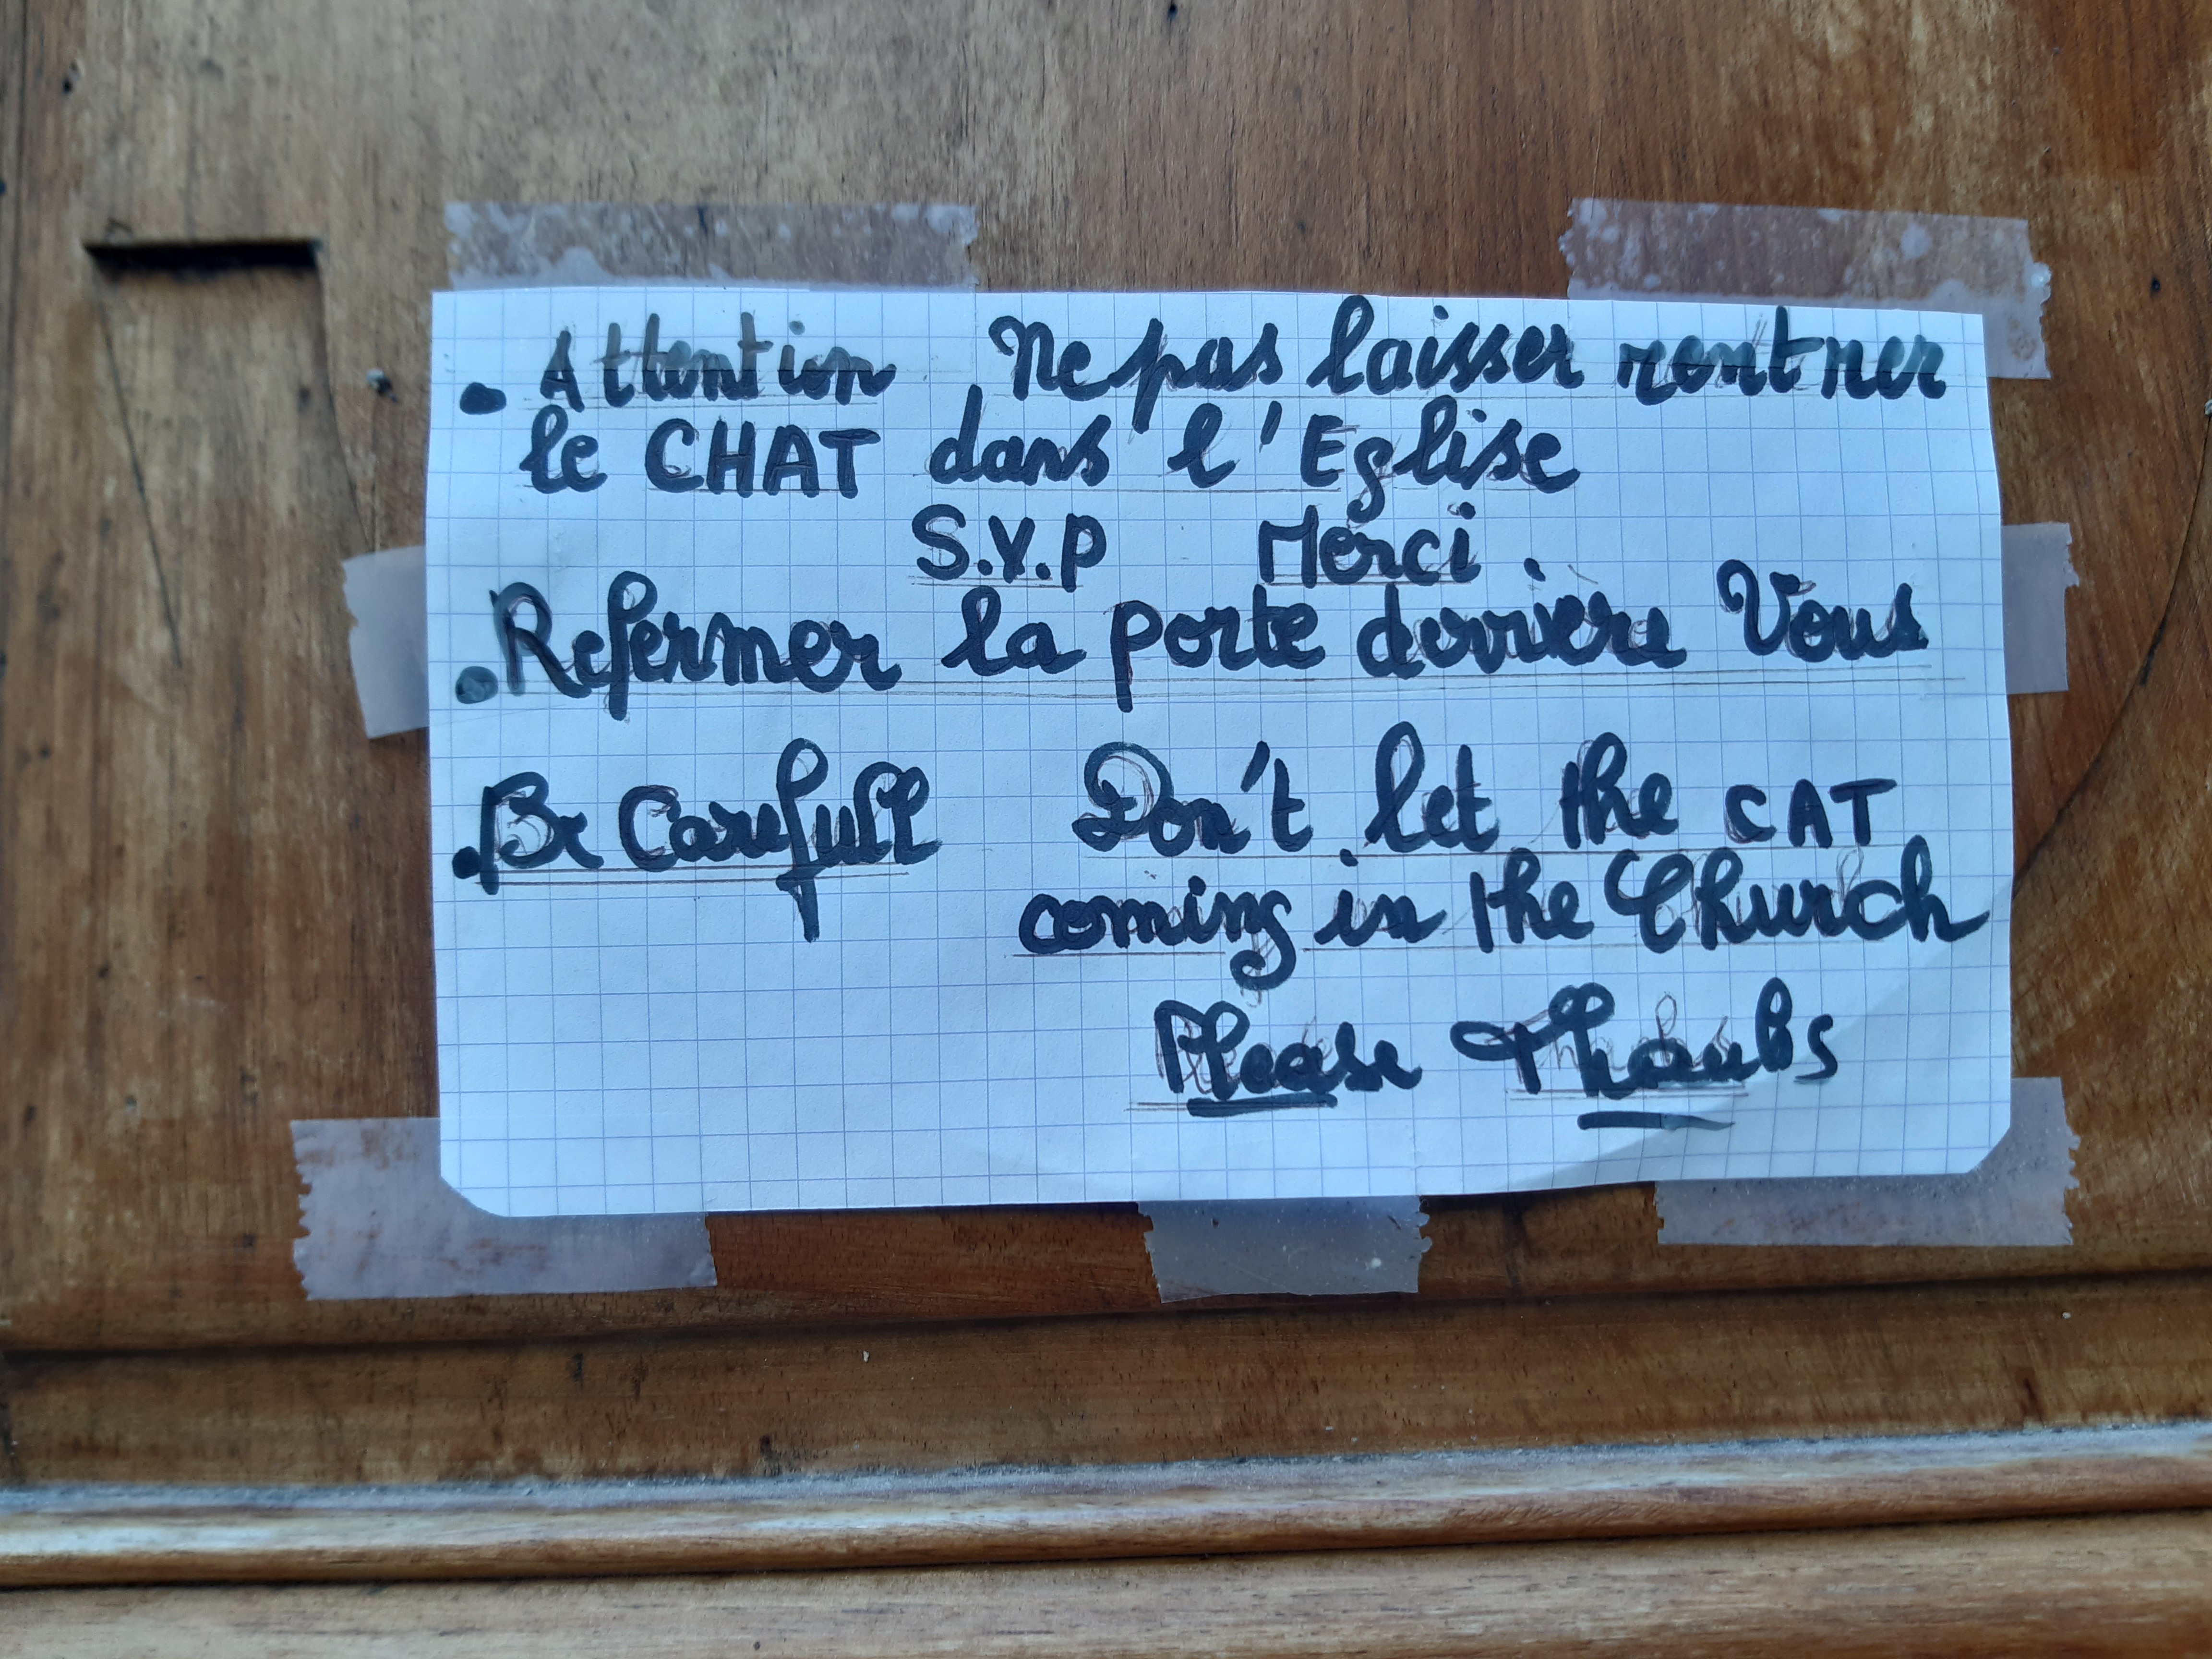 . Attention Ne pas laisser rentrer
le CHAT dans l'Eglise
S.V.P Merci.
. Refermer la porte derrière Vous
. Be Carefull Don't let the CAT
coming in the Church
Please Thanks